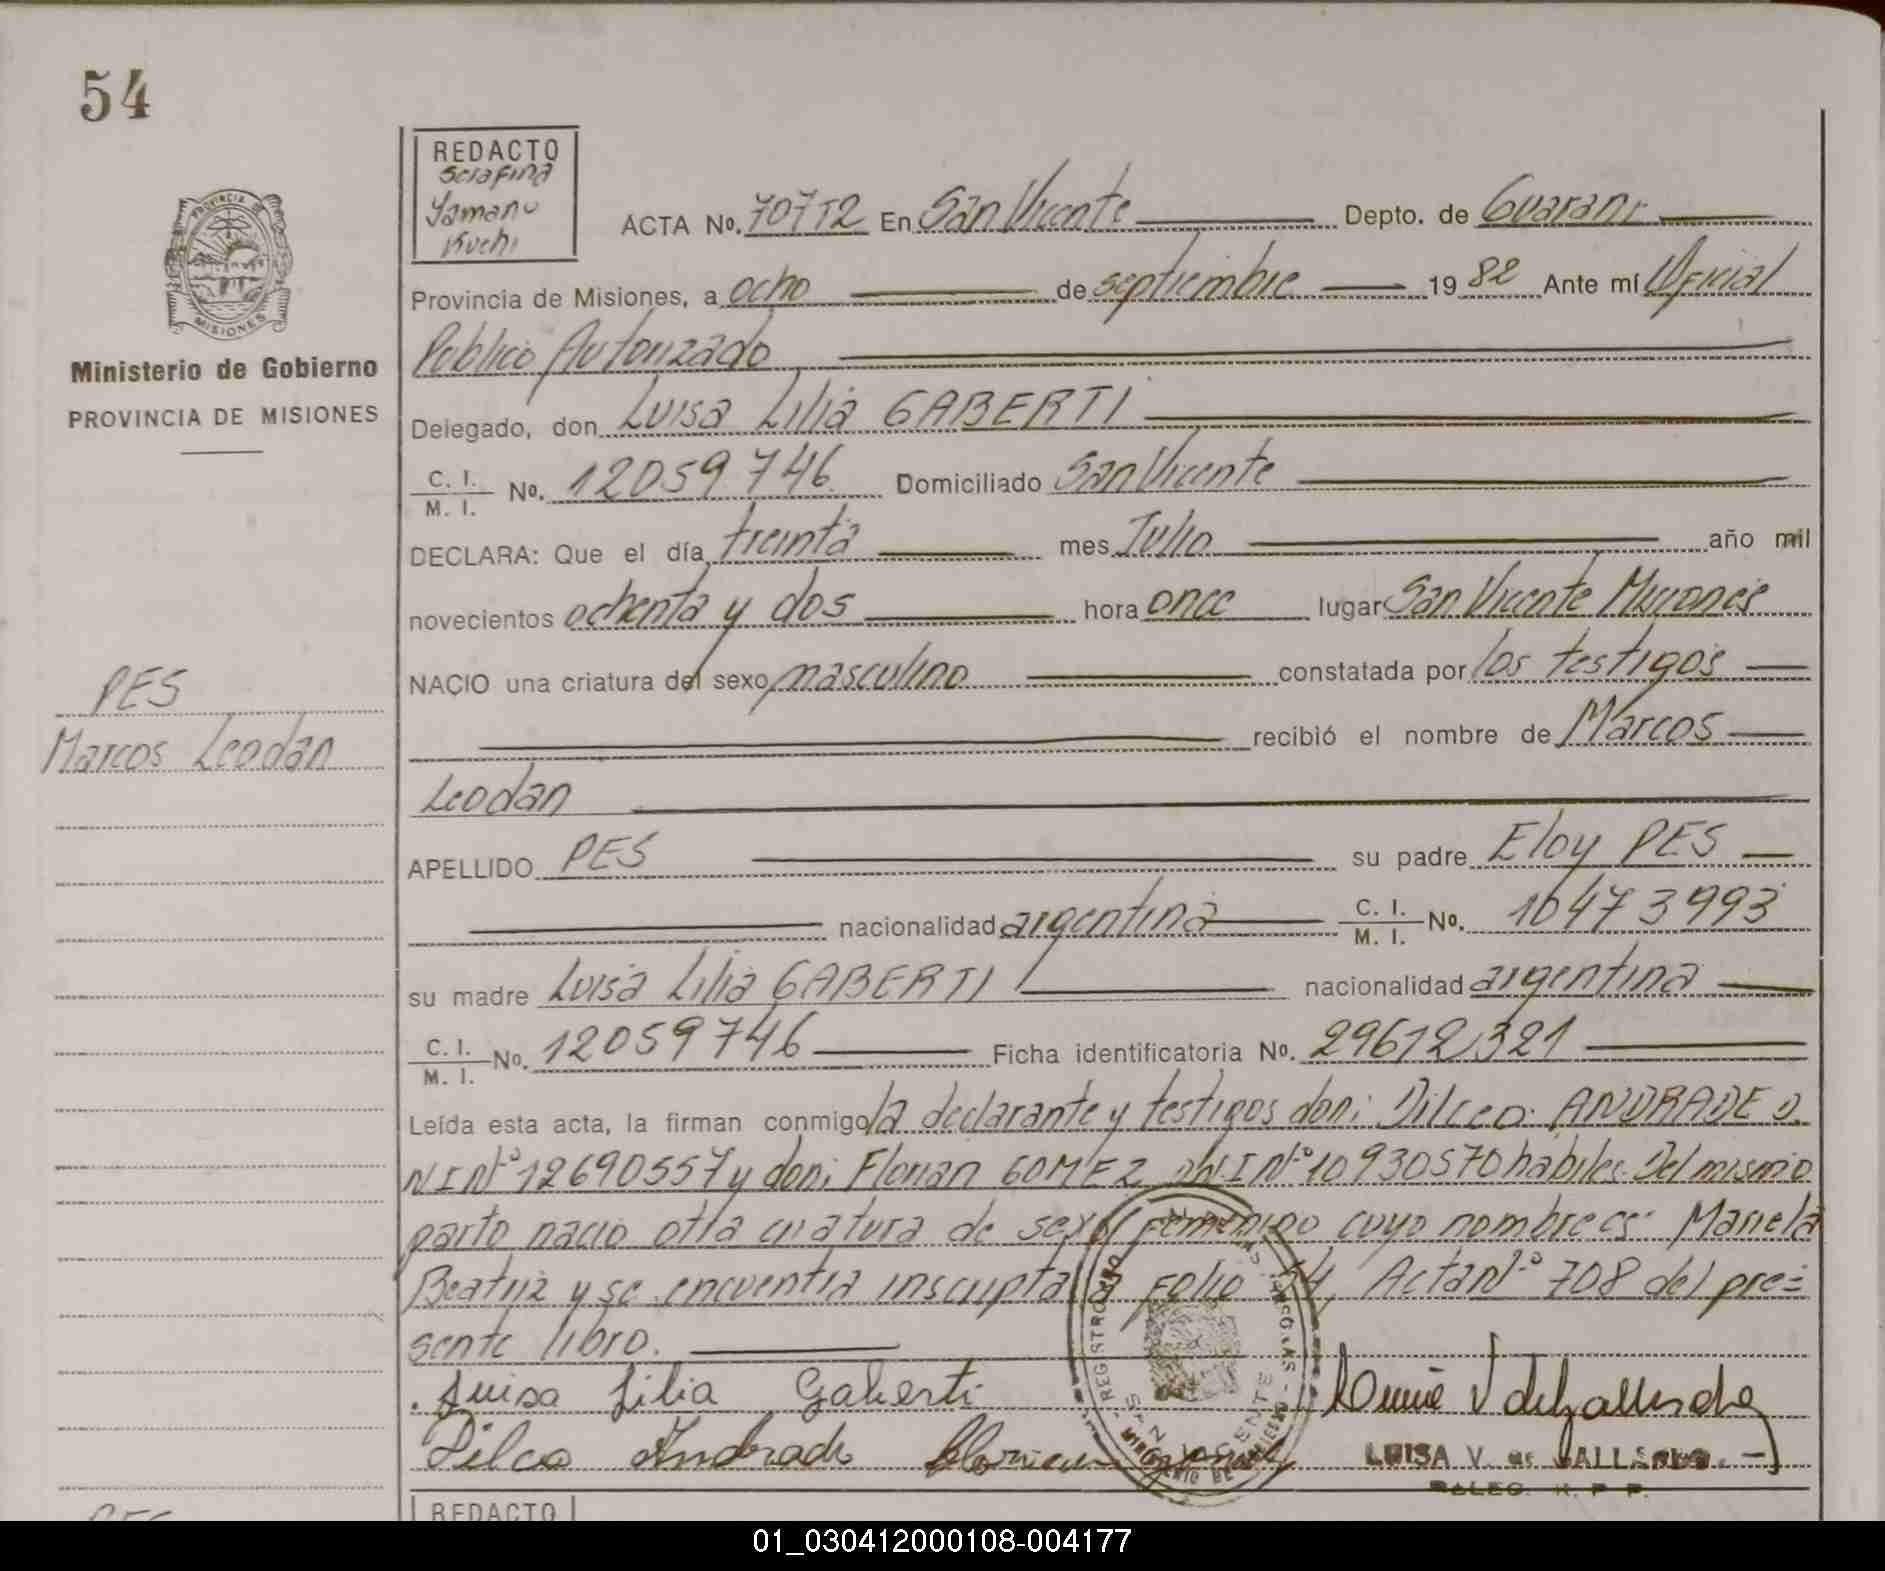 54
REDACTO
Serafina
Yamanu
Kuchi
ACTA No. 707T2 En San Vicente Depto. de Guarani
Provincia de Misiones, a ocho de septiembre 19 82 Ante mí Oficial
Publico Autorizado
Ministerio de Gobierno
PROVINCIA DE MISIONES
Delegado, don Luisa Lilia GABERTI
C. I.
M. I. No. 12059746 Domiciliado San Vicente
DECLARA: Que el día treinta mes Julio año mil
novecientos ochenta y dos hora once lugar San Vicente Misiones
NACIO una criatura del sexo masculino constatada por los testigos
PES
Marcos Leodan
recibió el nombre de Marcos
Leodan
APELLIDO PES su padre Eloy PES
nacionalidad argentina C. I.
M. I. No. 10473993
su madre Luisa Lilia GABERTI nacionalidad argentina
C. I.
M. I. No. 12059746 Ficha identificatoria No. 29612321
Leída esta acta, la firman conmigo la declarante y testigos don: Dilceo ANDRADE D.
N I Nº 12690557 y don: Florian GOMEZ DNI Nº 10930570 habiles. Del mismo
parto nacio otra criatura de sexo femenino cuyo nombre es: Mariela
Beatriz y se encuentra inscripta a Folio 54, Acta Nº 708 del pre=
sente libro.
Luisa Lilia Gaberti
Dilceo Andrade Florian Gomez
LUISA V. de GALLARDO
DELEG. R. P. P.
REGISTRO PROV. DE LAS PERSONAS
SAN VICENTE
MINISTERIO DE GOBIERNO
REDACTO
PES
01_030412000108-004177